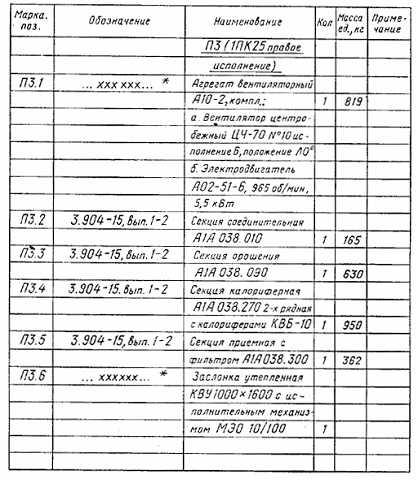 Марка. поз. Обозначение Наименование Кол Масса ед., кг Приме- чание
П3 (1ПК25 правое
исполнение)
П3.1 ... ххх ххх... * Агрегат вентиляторный
А10-2, компл.; 1 819
а. Вентилятор центро-
бежный ЦЧ-70 №10 ис-
полнение 6, положение Л0°
б. Электродвигатель
А02-51-6, 965 об/мин,
5,5 кВт
П3.2 3.904-15, вып. 1-2 Секция соединительная
А1А 038.010 1 165
П3.3 3.904-15, вып. 1-2 Секция орошения
А1А 038.090 1 630
П3.4 3.904-15. вып. 1-2 Секция калориферная
А1А 038.270 2-х рядная
с калориферами КВБ-10 1 950
П3.5 3.904-15, вып. 1-2 Секция приемная с
фильтром А1А 038.300 1 362
П3.6 ... хххххх... * Заслонка утепленная
КВУ1000×1600 с ис-
полнительным механиз-
мом МЭО 10/100 1